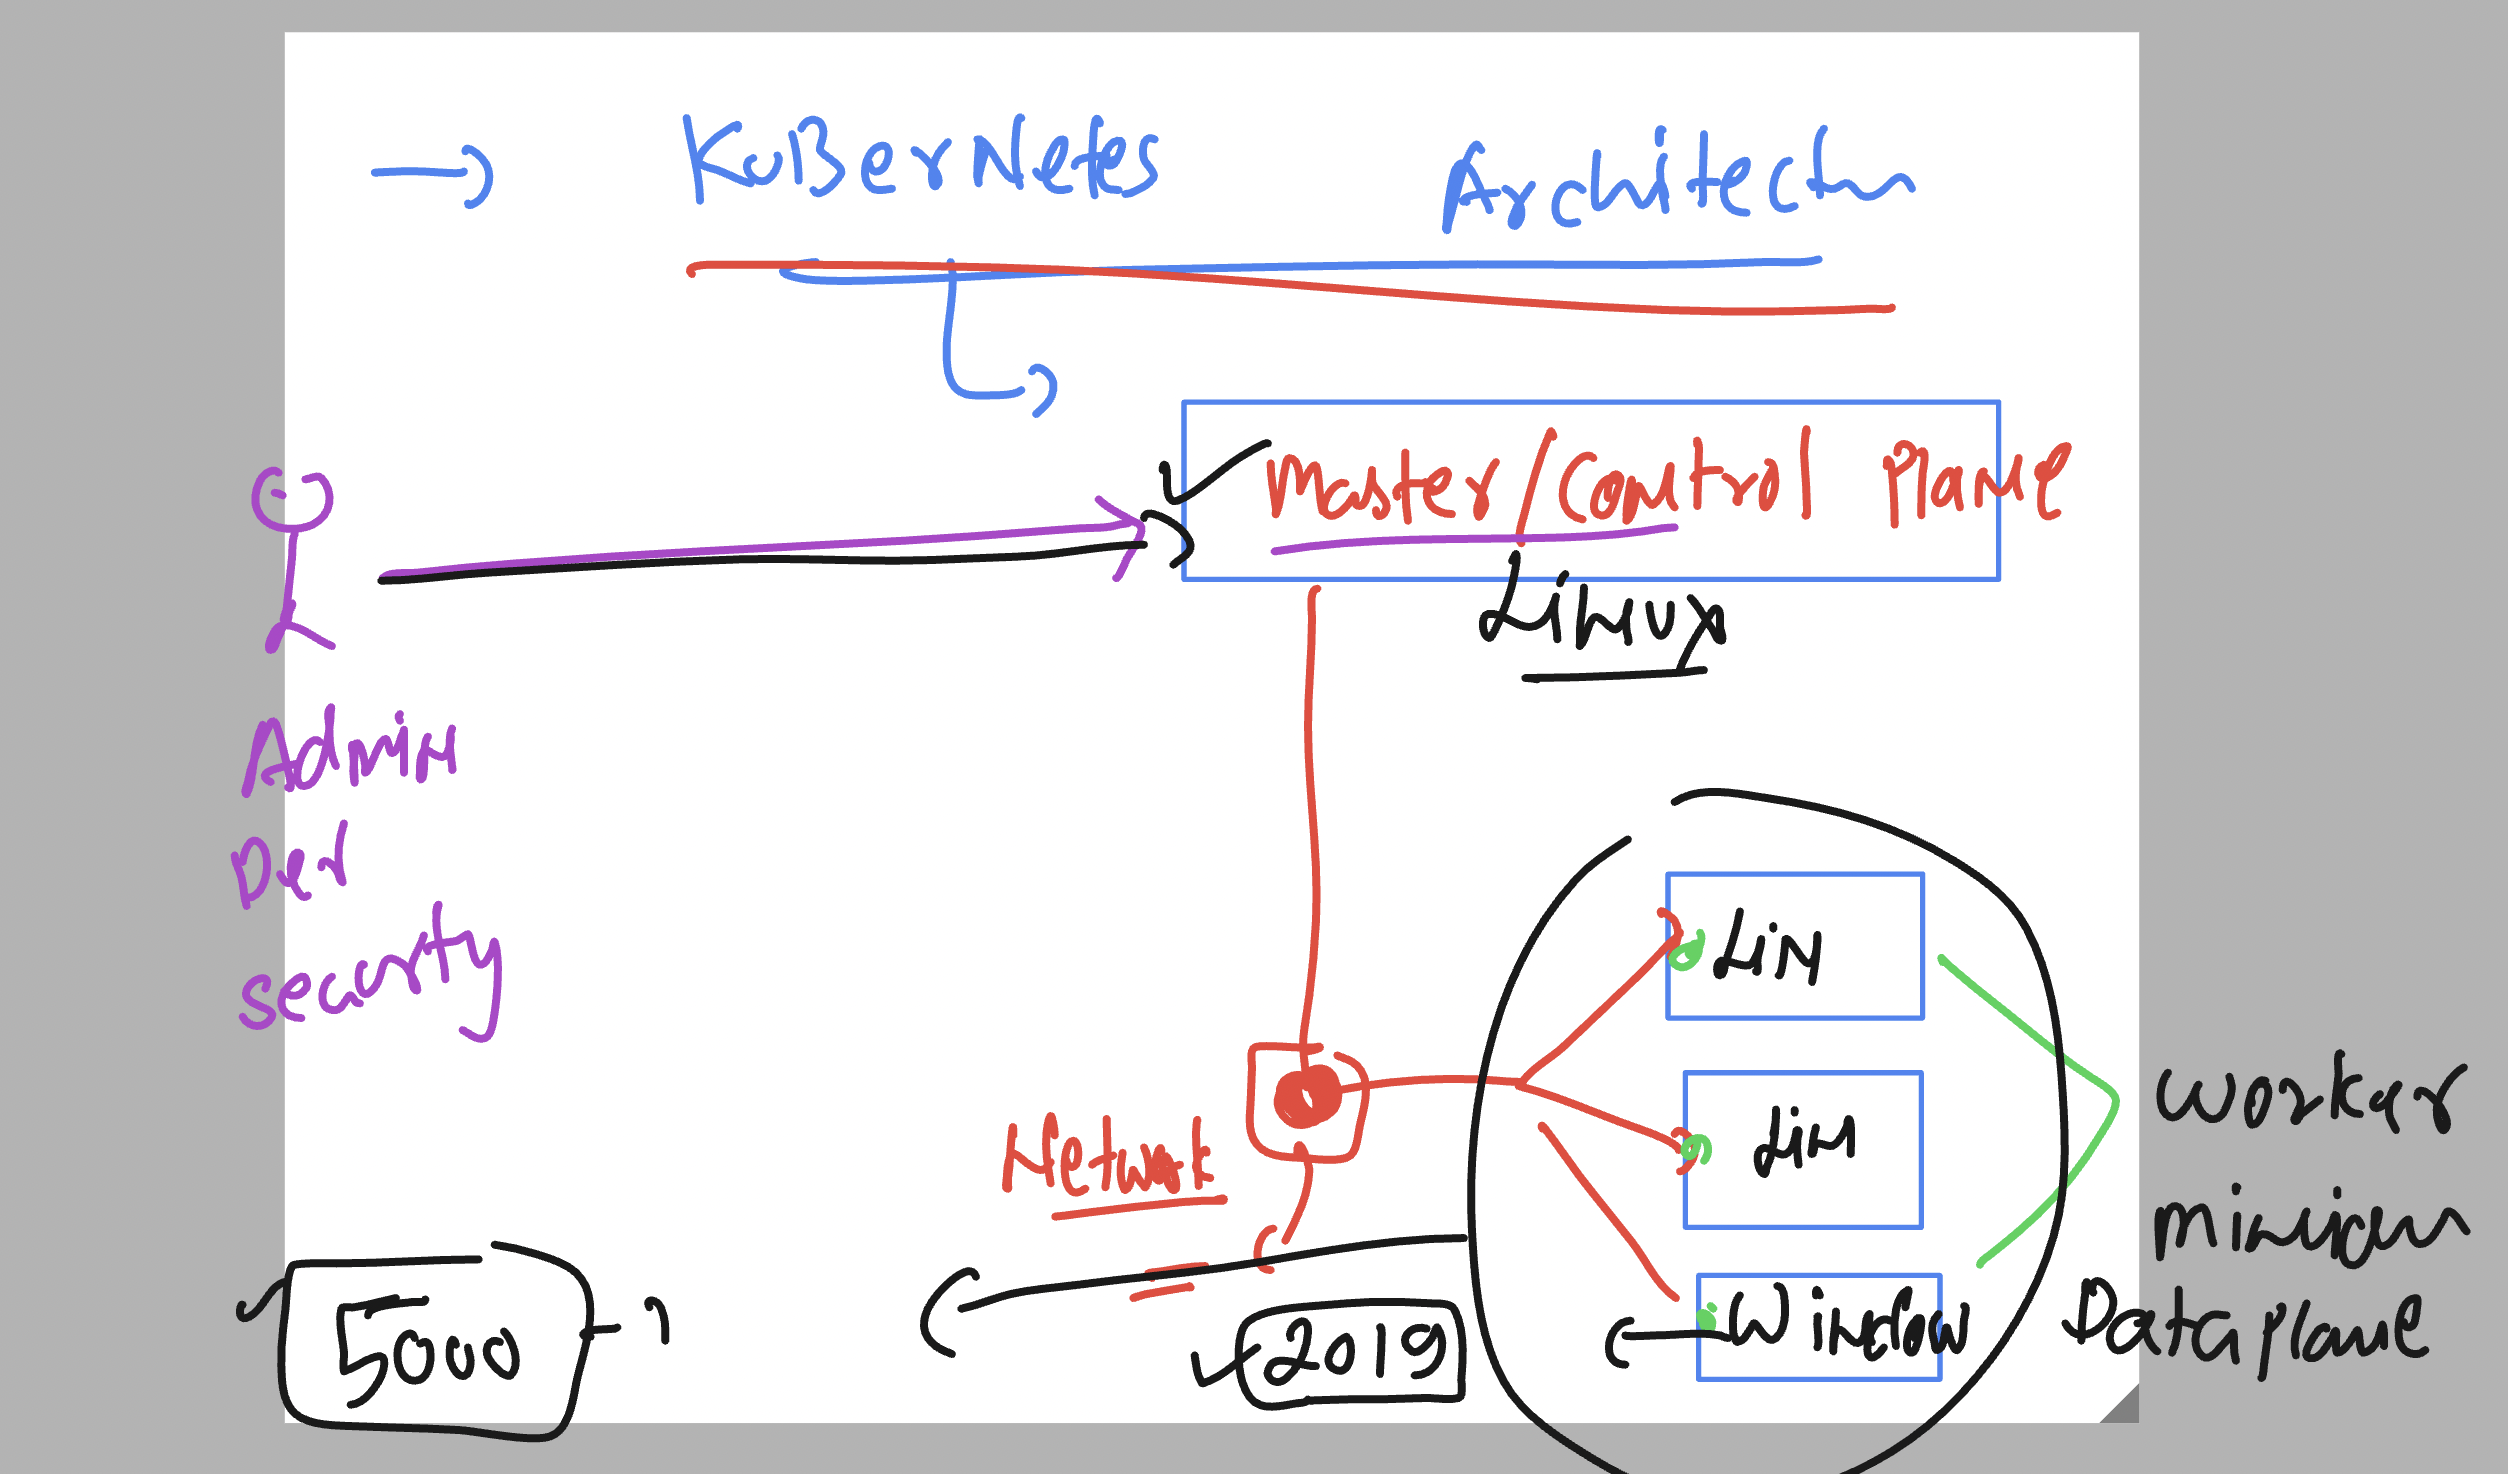 KuBerNetes Architect
Master/Control Plane
Linux
Admin
Dev
security
Lin
Network
Lin
worker
minion
Dataplane
Window
5000
2019